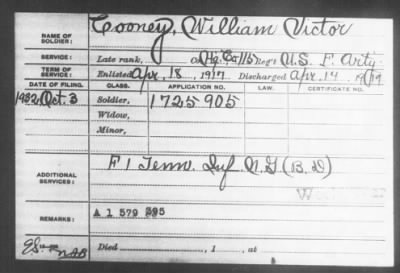 NAME OF SOLDIER: Cooney, William Victor
SERVICE: Late rank, Co Hq. Co 115 Reg't U.S. F. Arty
TERM OF SERVICE: Enlisted Apr. 18, 1917. Discharged Apr. 14, 1919
DATE OF FILING. CLASS. APPLICATION NO. LAW. CERTIFICATE NO.
1932 Oct. 3 Soldier, 1725905
Widow,
Minor,
ADDITIONAL SERVICES: F 1 Tenn. Inf. N.G. (B.D)
REMARKS: A 1 579 395
Died , 1 , at